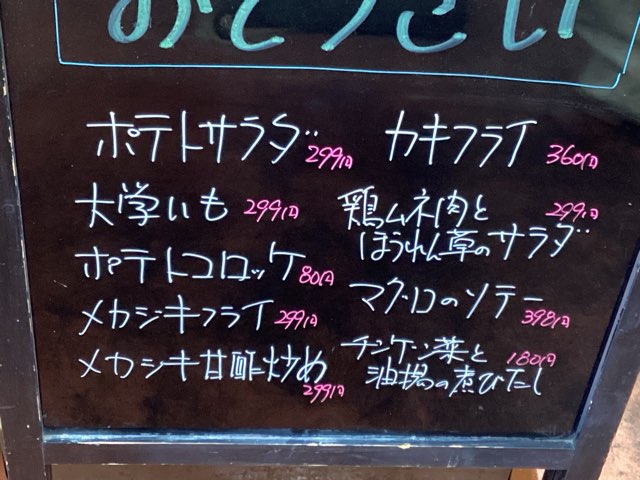 おそうざい
ポテトサラダ 299円
大学いも 299円
ポテトコロッケ 80円
メカジキフライ 299円
メカジキ甘酢炒め
299円
カキフライ 360円
鶏ムネ肉と 299円
ほうれん草のサラダ
マグロのソテー
398円
チンゲン菜と 180円
油揚の煮びたし